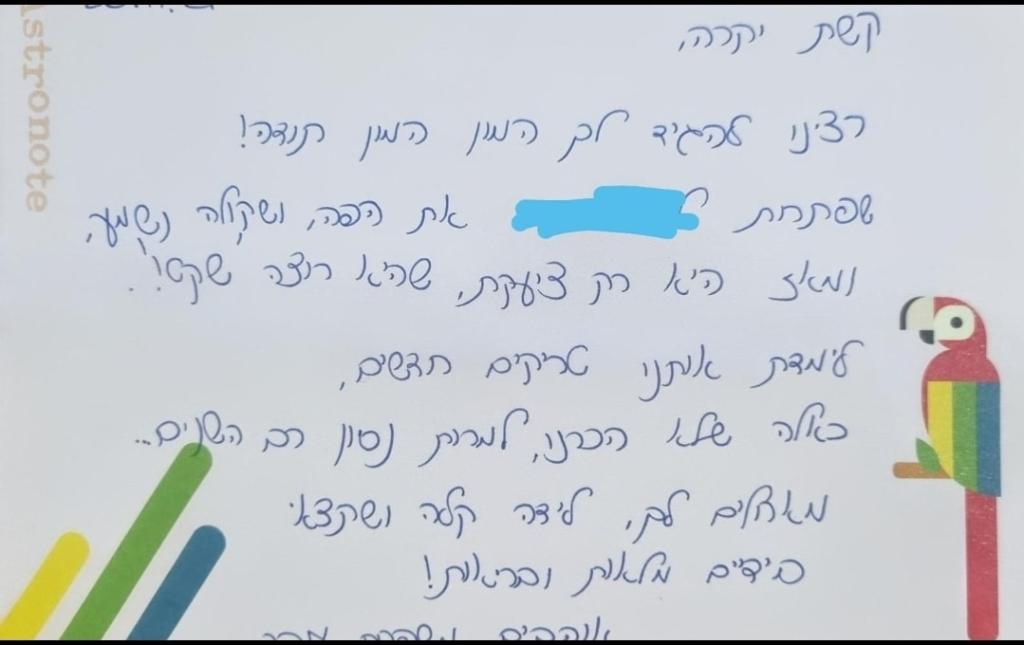 Astronote
קשת יקרה,
רצינו להגיד לך המון המון תודה!
שפתחת ל את הפה, ושקולה נשמע,
ומאז היא רק צועקת, שהיא רוצה שקט!..
לימדת אותנו טריקים חדשים,
כאלה שלא הכרנו, למרות נסיון רב השנים...
מאחלים לך, לידה קלה ושתצאי
בידיים מלאות ובריאות!